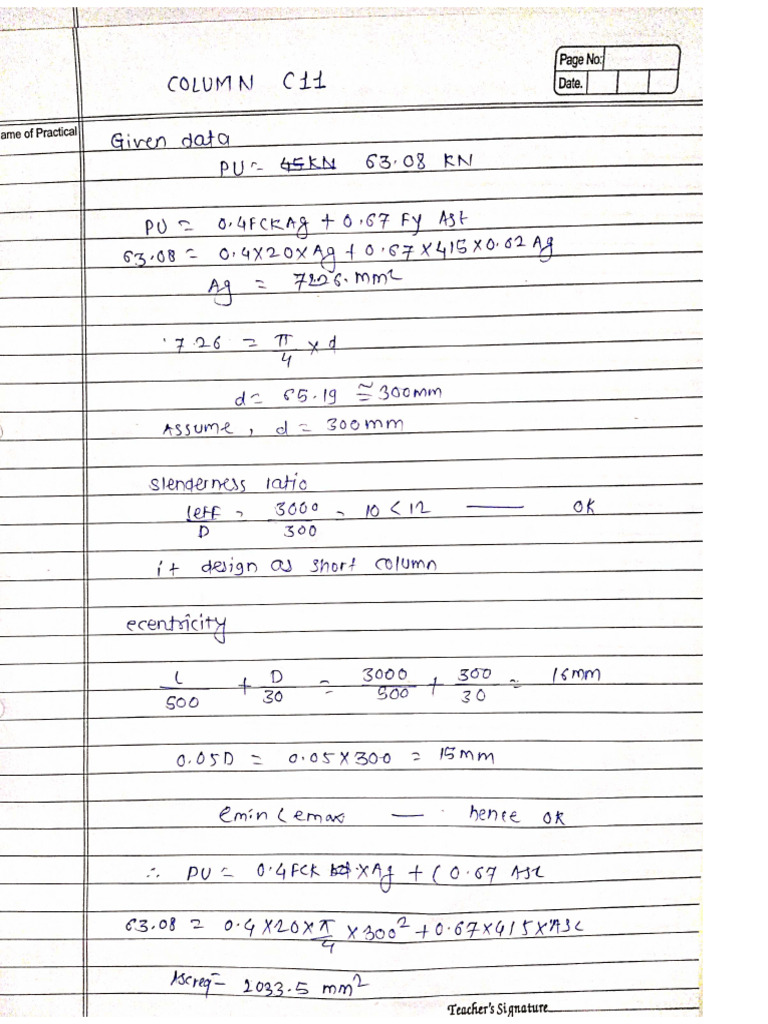 Page No:
Date.
COLUMN C11
ame of Practical
Given data
PU = 45KN 63.08 KN
PU = 0.4FCKAg + 0.67 Fy Ast
63.08 = 0.4X20XAg + 0.67X415X0.02 Ag
Ag = 7226.mm2
726 = π/4 x d
d = 65.19 ≅ 300mm
Assume, d = 300mm
slenderness ratio
leff/D = 3000/300 = 10 < 12 —— OK
it design as short column
ecentricity
L/500 + D/30 = 3000/500 + 300/30 = 16mm
0.05D = 0.05X300 = 15mm
emin < emax — hence OK
∴ PU = 0.4FCK XAg + (0.67 Asc
63.08 = 0.4X20Xπ/4 X300² + 0.67X415XASC
Ascreq = 2033.5 mm²
Teacher's Signature